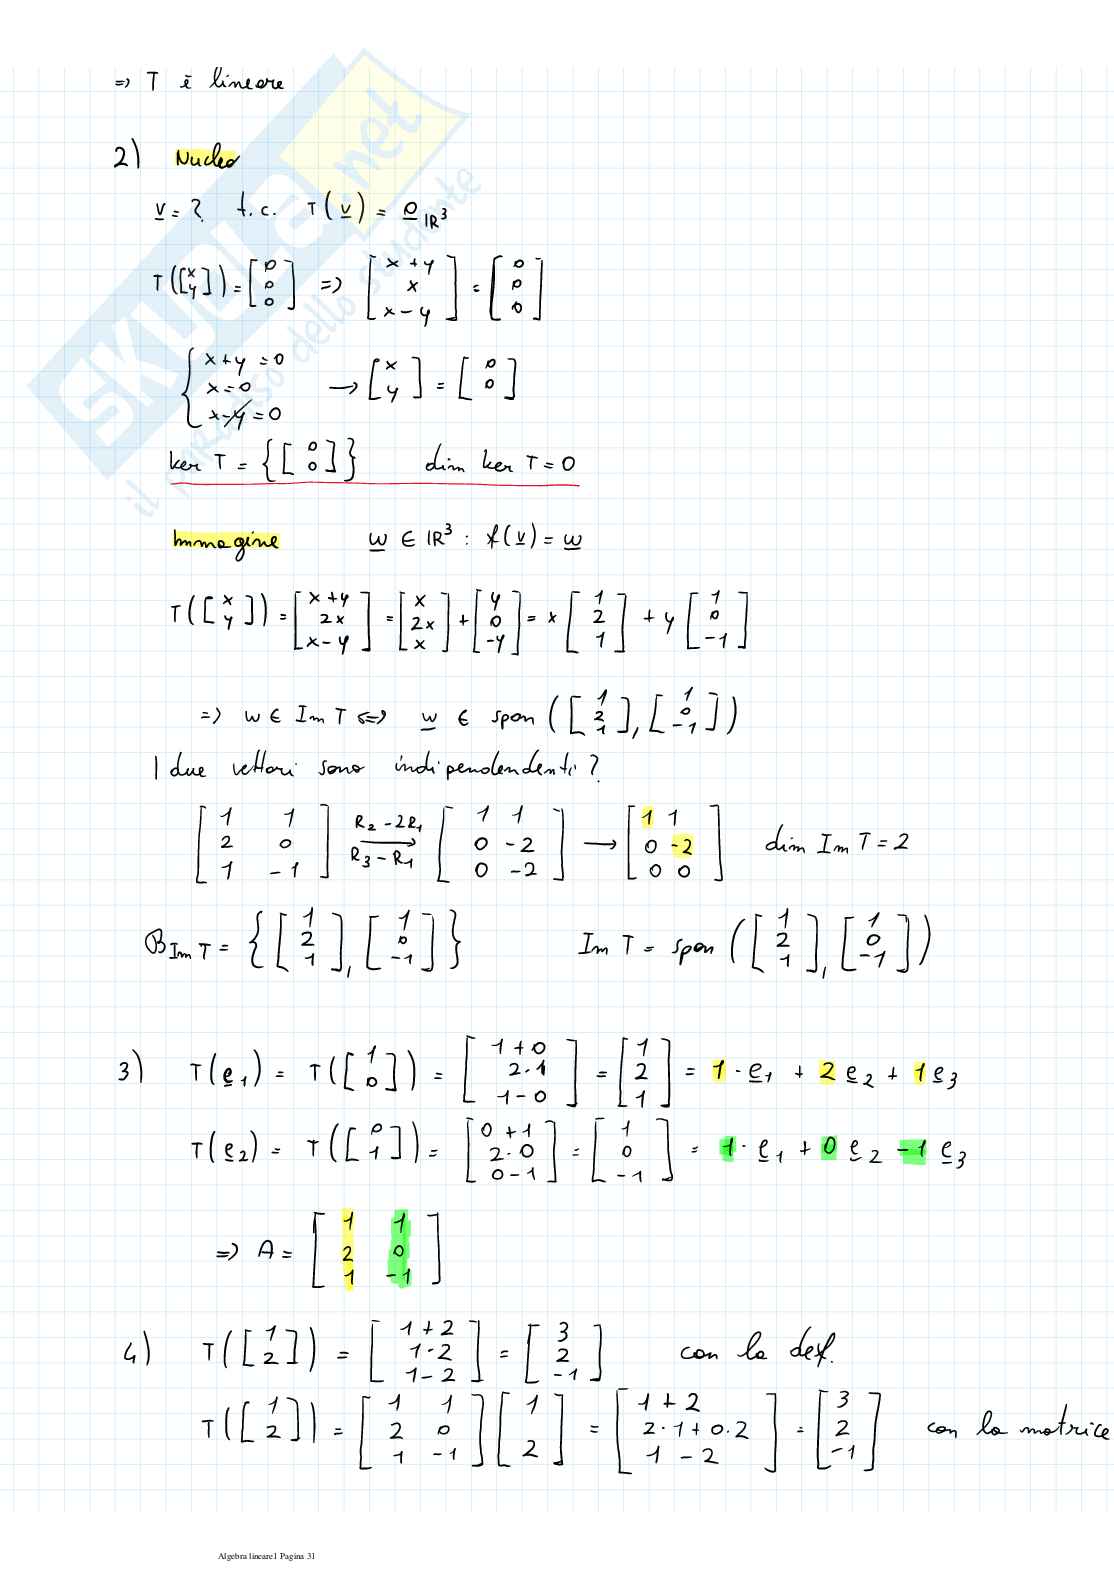 => T è lineare
2) Nucleo
v = ? t.c. T(v) = 0_{IR^3}
T([x y]) = [0 0 0] => [x+y x x-y] = [0 0 0]
{ x+y=0
x=0
x-y=0
→ [x y] = [0 0]
ker T = {[0 0]} dim ker T = 0
Immagine w ∈ IR^3 : f(v) = w
T([x y]) = [x+y 2x x-y] = [x 2x x] + [y 0 -y] = x [1 2 1] + y [1 0 -1]
=> w ∈ Im T <=> w ∈ span ([1 2 1], [1 0 -1])
I due vettori sono indipendendenti?
[1 1; 2 0; 1 -1] R2-2R1 R3-R1 → [1 1; 0 -2; 0 -2] → [1 1; 0 -2; 0 0] dim Im T = 2
B_{Im T} = {[1 2 1], [1 0 -1]} Im T = span ([1 2 1], [1 0 -1])
3) T(e1) = T([1 0]) = [1+0 2·1 1-0] = [1 2 1] = 1·e1 + 2 e2 + 1 e3
T(e2) = T([0 1]) = [0+1 2·0 0-1] = [1 0 -1] = 1·e1 + 0 e2 -1 e3
=> A = [1 1; 2 0; 1 -1]
4) T([1 2]) = [1+2 1·2 1-2] = [3 2 -1] con la def.
T([1 2]) = [1 1; 2 0; 1 -1] [1 2] = [1+2 2·1+0·2 1-2] = [3 2 -1] con la matrice
Algebra lineare1 Pagina 31
SKUOLA.net
il paradiso dello studente